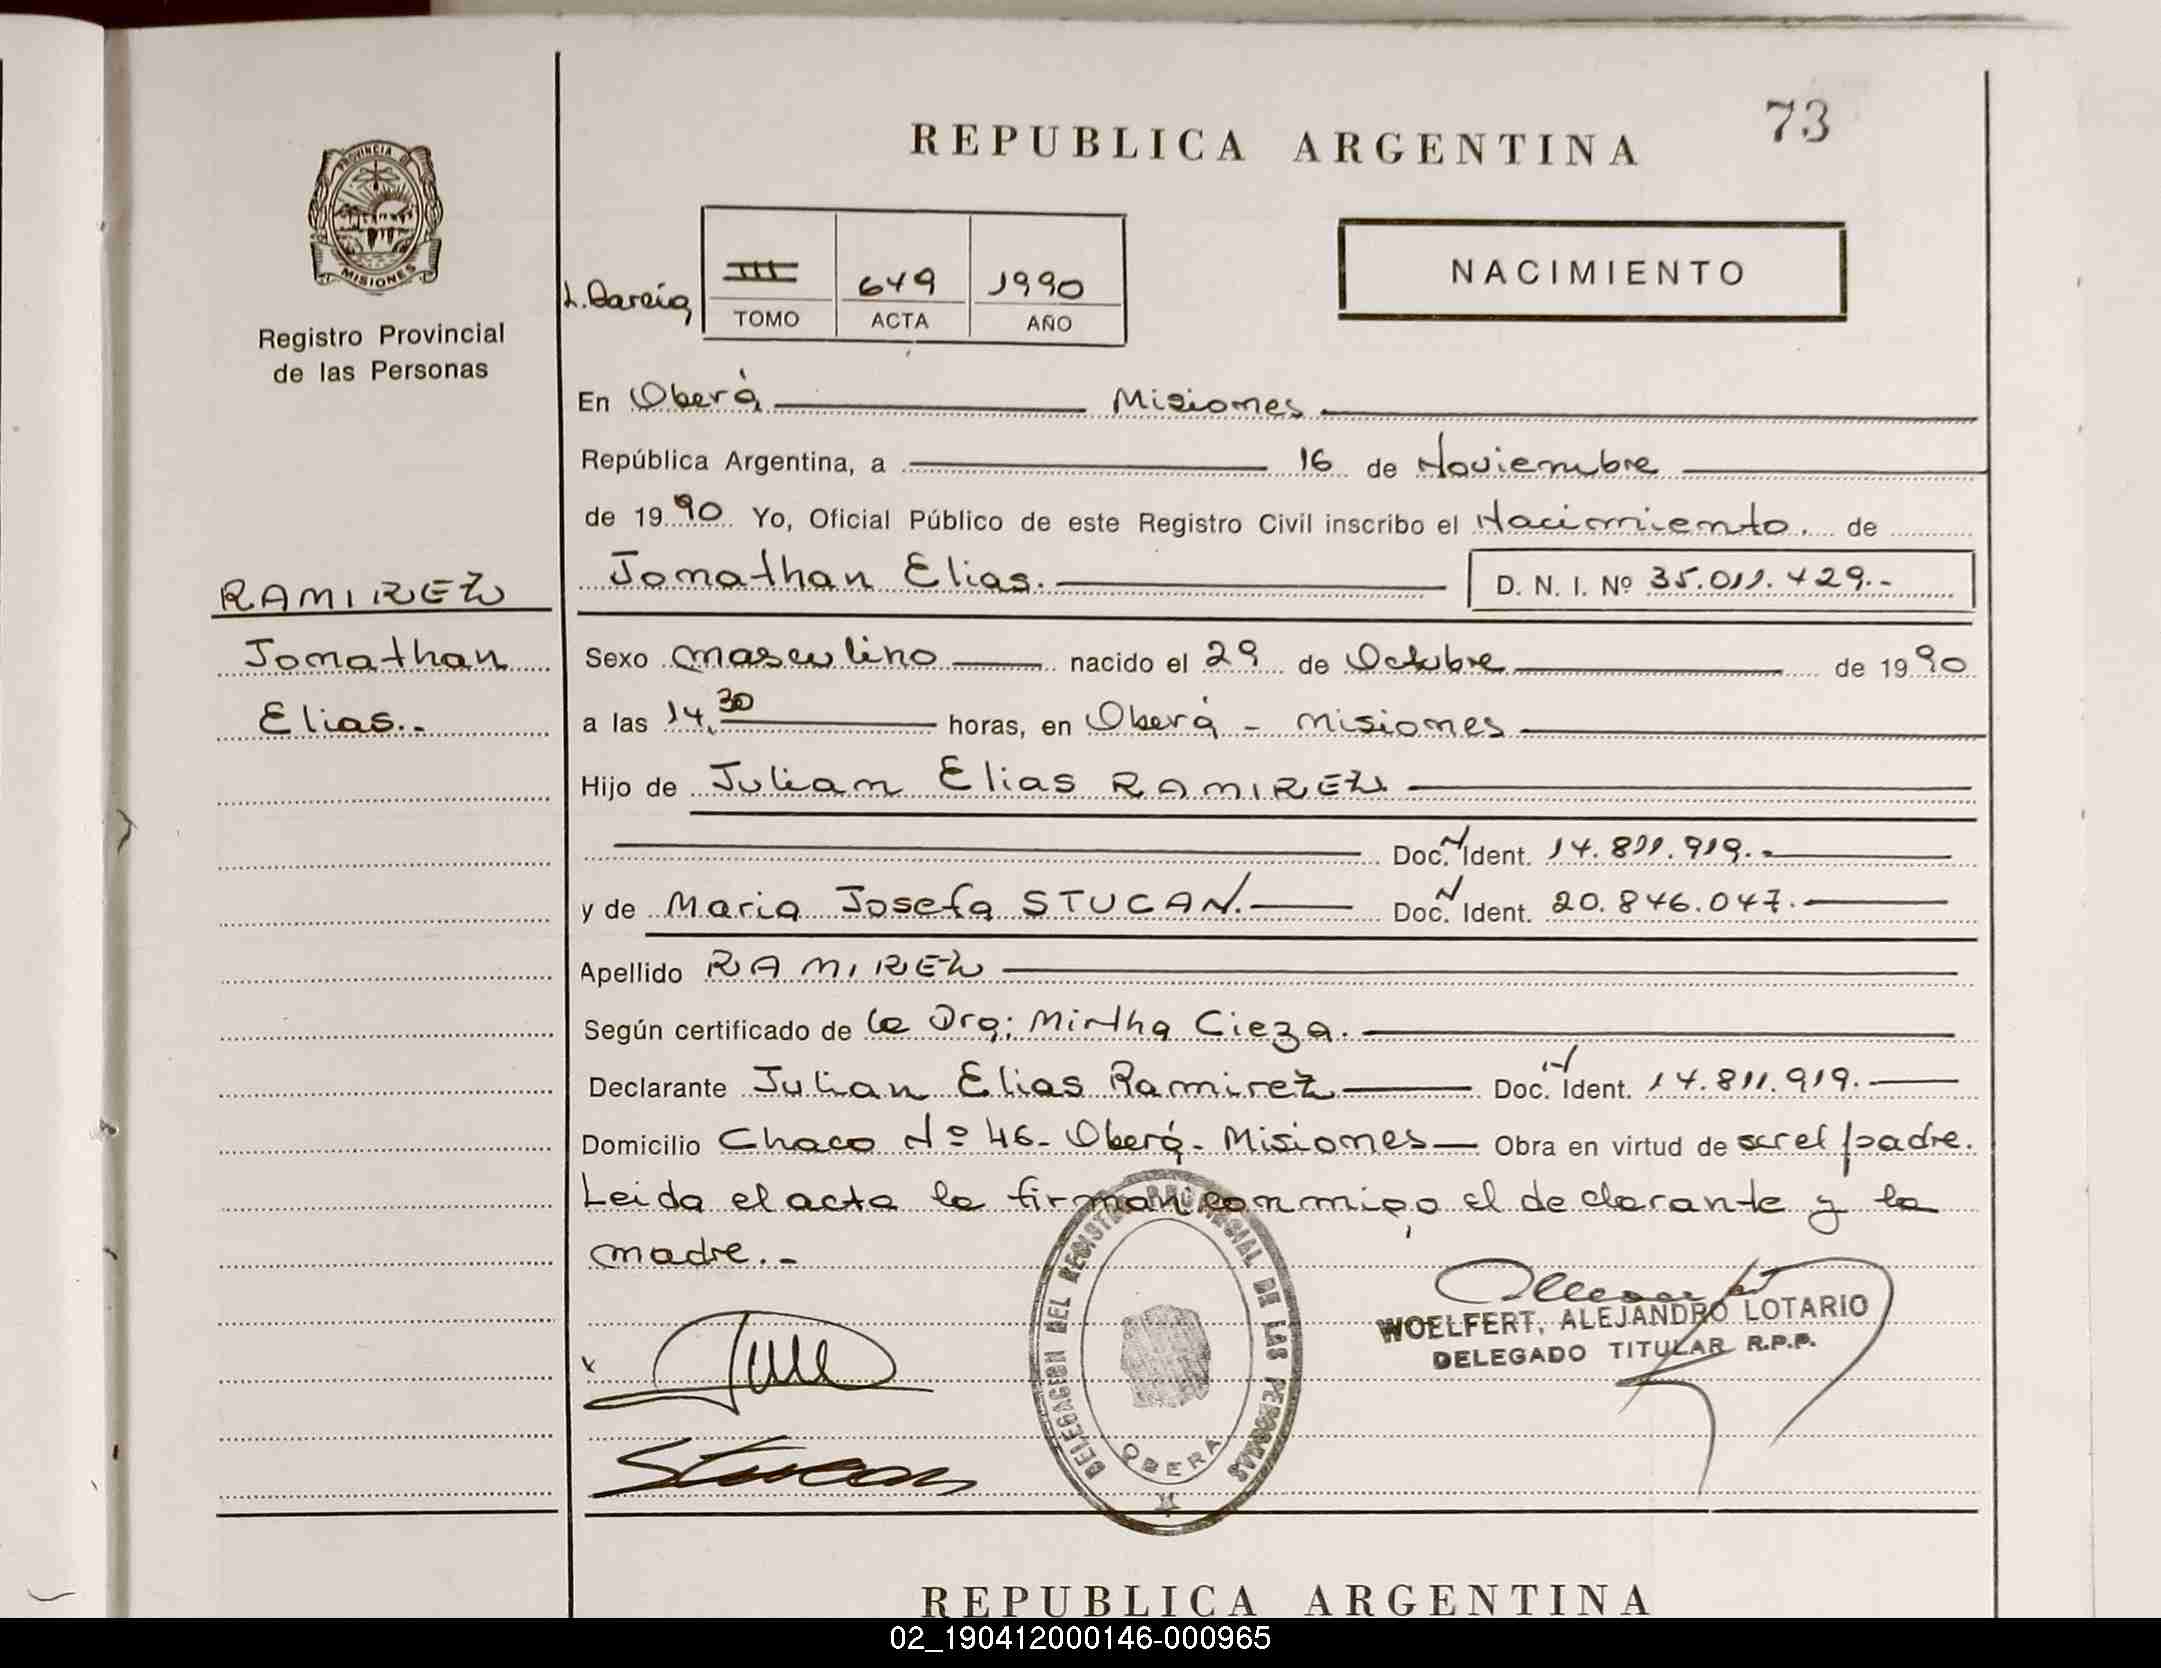 73
REPUBLICA ARGENTINA
PROVINCIA DE
MISIONES
Registro Provincial
de las Personas
L. Garcia
III 649 1990
TOMO ACTA AÑO
NACIMIENTO
En Oberá Misiones
República Argentina, a 16 de Noviembre
de 1990 Yo, Oficial Público de este Registro Civil inscribo el Nacimiento. de
Jonathan Elias. D. N. I. Nº 35.011.429.-
RAMIREZ
Jonathan
Elias.-
Sexo masculino nacido el 29 de Octubre de 1990
a las 14,30 horas, en Oberá - Misiones
Hijo de Julian Elias RAMIREZ
Doc. N Ident. 14.811.919.-
y de Maria Josefa STUCAN. Doc. N Ident. 20.846.047.
Apellido RAMIREZ
Según certificado de la Dra; Mirtha Cieza.
Declarante Julian Elias Ramirez Doc. N Ident. 14.811.919.
Domicilio Chaco Nº 46- Oberá- Misiones Obra en virtud de ser el padre.
Leida el acta la firman conmigo el declarante y la
madre.-
DELEGACION DEL REGISTRO PROVINCIAL DE LAS PERSONAS
OBERA
WOELFERT, ALEJANDRO LOTARIO
DELEGADO TITULAR R.P.P.
x
Stucan
REPUBLICA ARGENTINA
02_190412000146-000965